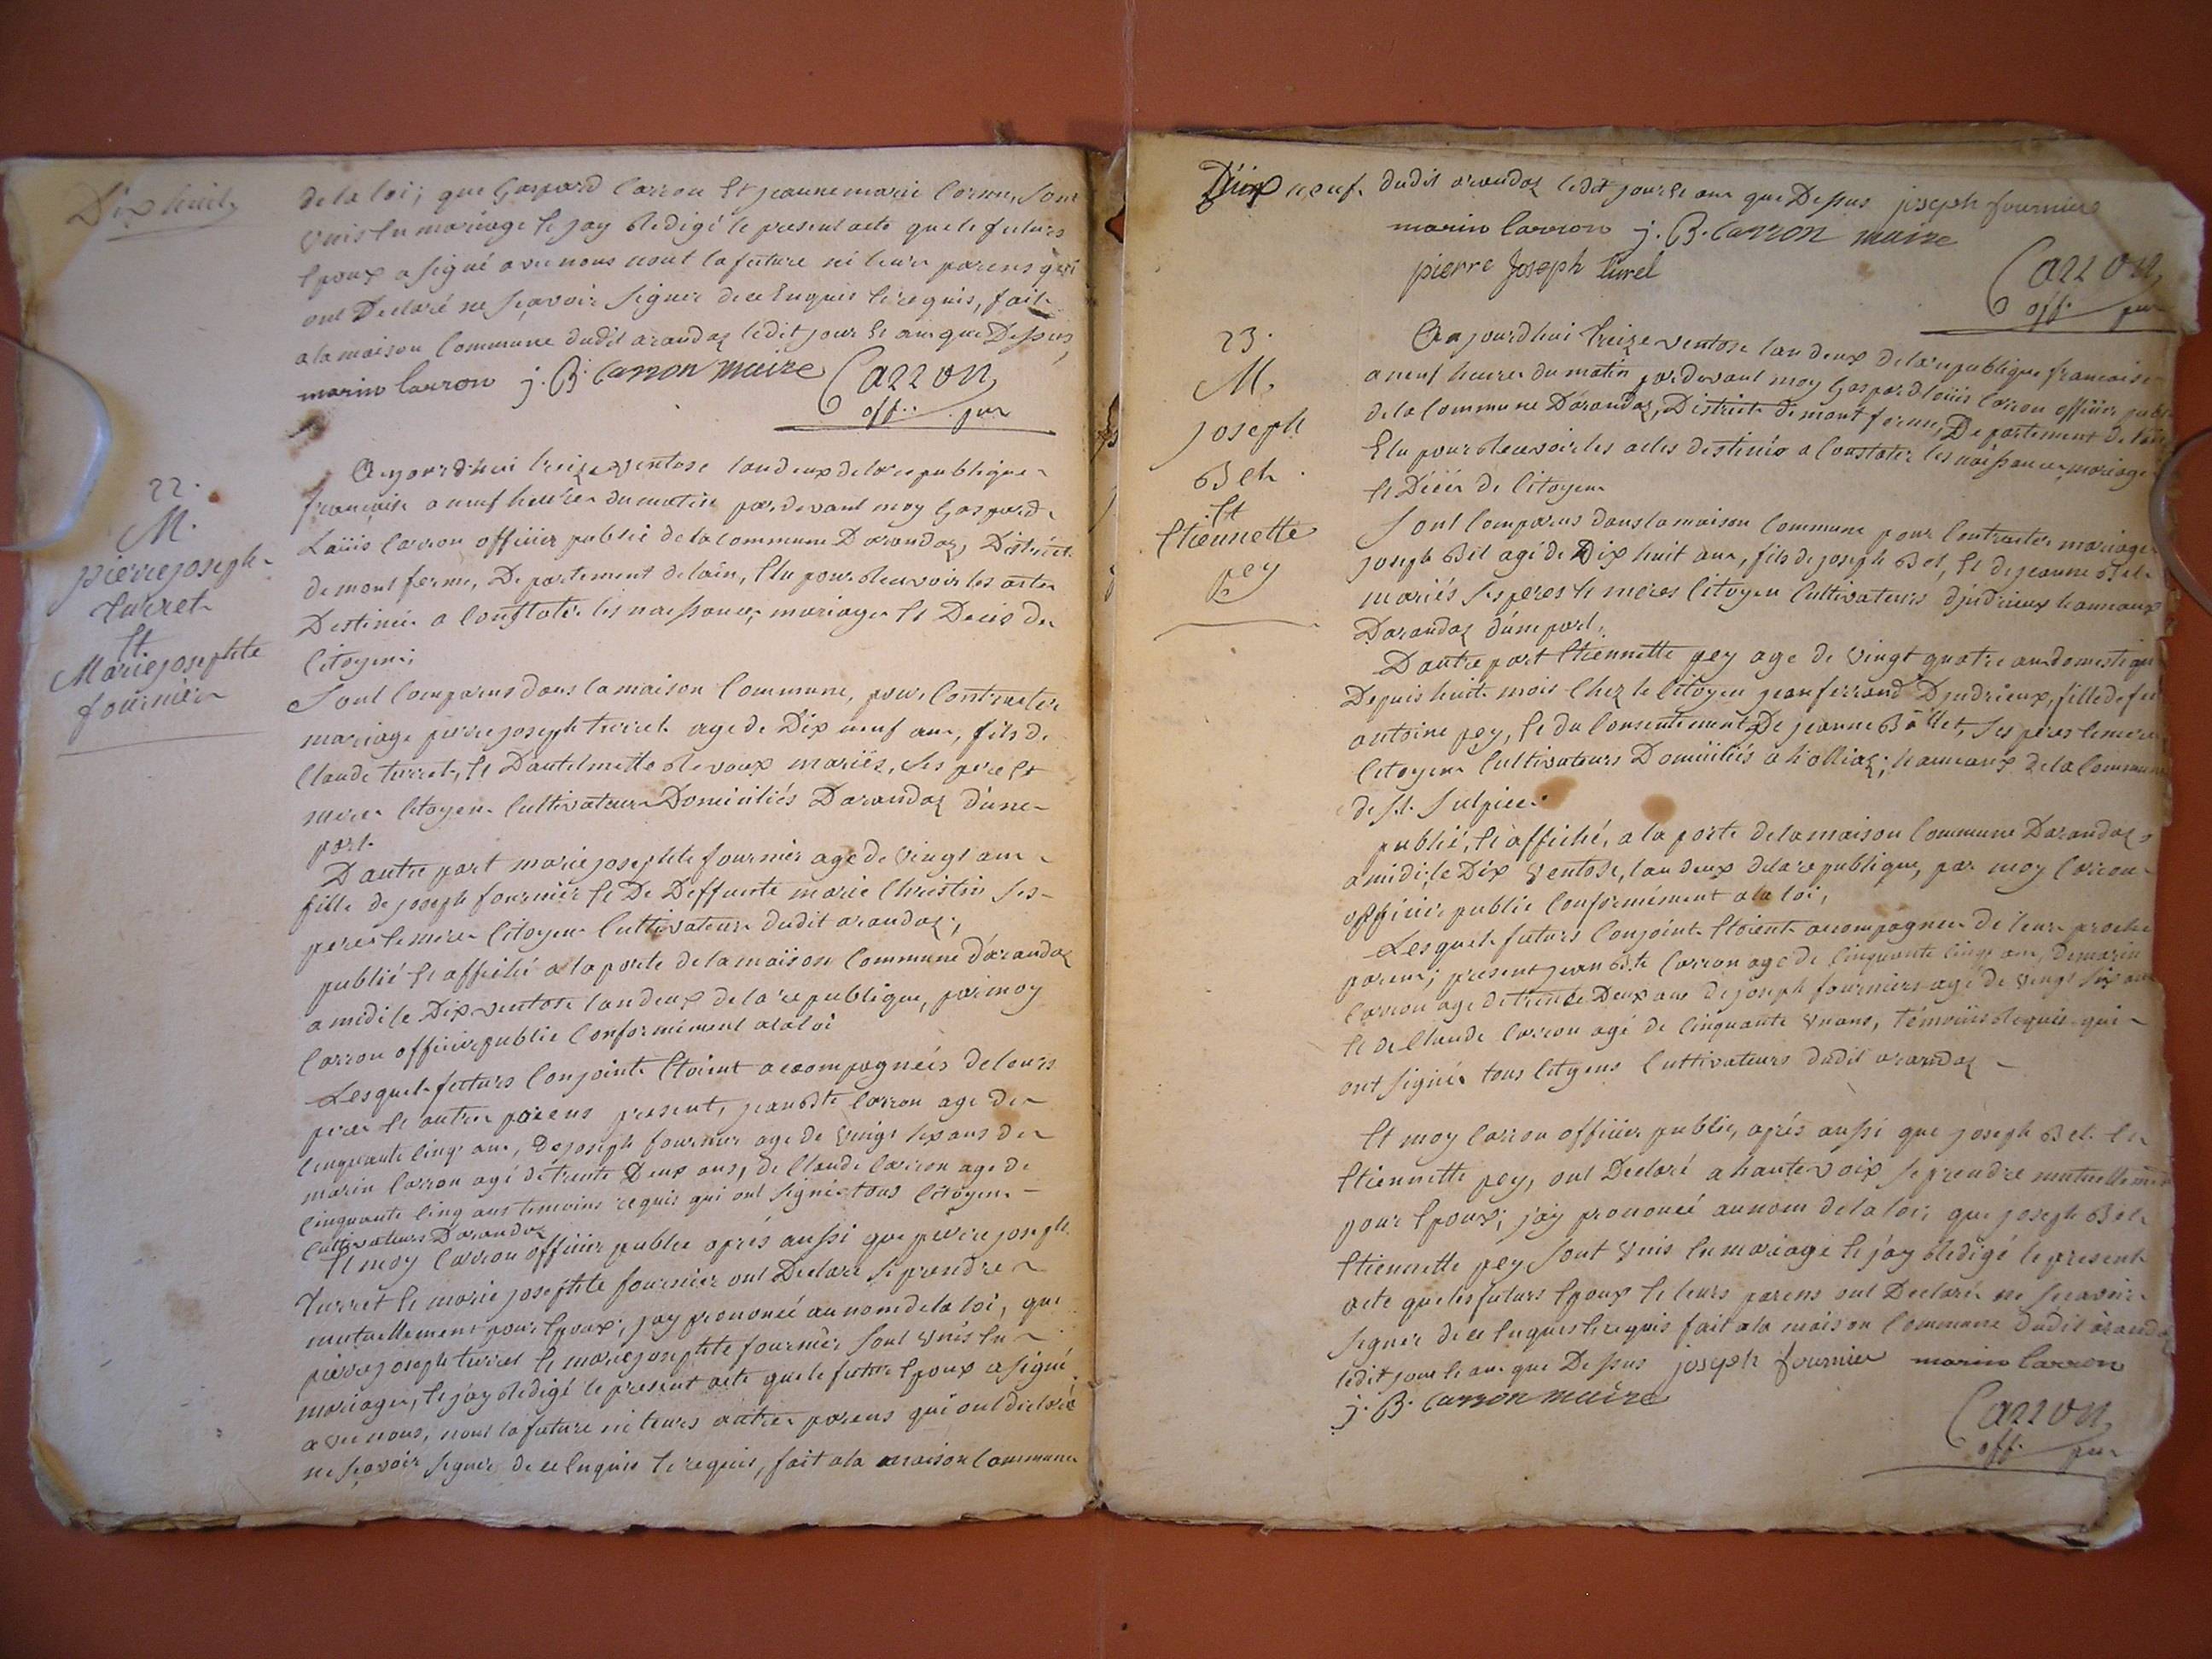 Dix huit
de la loi; que Gaspard Carron Et jeanne marie Cormu, Sont
unis En mariage Et jay Redigé le present acte que le futurs
Epoux a signé avec nous nont la future ni leurs parens qui
ont Declaré ne sçavoir signer de ce Enquis Et requis, fait
a la maison Commune dudit arandaz ledit jour Et an que Dessus,
marin Carron j. B. Carron maire Carron
off. pu
22.
M.
pierre joseph
turret
Et
Marie josephte
fournier
Aujourd'hui treize ventose lan deux de la republique
francaise a neuf heures du matin par devant moy Gaspard
Loüis Carron officier public de la commune Darandaz, District
de mont ferme, Departement de lain, Elu pour Recevoir les actes
Destinés a Constater les naissances, mariages Et Deces des
Citoyens;
Sont Comparus dans la maison Commune, pour Contracter
mariage pierre joseph turret age de Dix neuf ans, fils de
Claude turret, Et Dantelmette Revoux mariés, ses pere Et
meres Citoyens Cultivateurs Domiciliés Darandaz dune
part.
D'autre part marie josephte fournier age de vingt ans
fille de joseph fournier Et De Deffunte marie Christin ses
peres Et meres Citoyens Cultivateurs dudit arandaz;
publié Et affiché a la porte de la maison Commune d'arandaz
a midi le Dix ventose lan deux de la republique, par moy
Carron officier public Conformément a la loi
Lesquels futurs Conjoints Etoient accompagnés de leurs
peres Et autres parens present, jean Bte Carron age de
Cinquante Cinq ans, De joseph fournier age de vingt six ans de
marin Carron agé de trente Deux ans, de Claude Carron age de
Cinquante Cinq ans temoins requis qui ont signés tous Citoyens
Cultivateurs Darandaz
Et moy Carron officier public aprés aussi que pierre joseph
turret Et marie josephte fournier ont Declaré se prendre
mutuellement pour Epoux; jay prononcé au nom de la loi, que
pierre joseph turret Et marie josephte fournier sont unis En
mariages, Et jay Redigé le present acte que le futur Epoux a signé
avec nous, nont la future ni leurs autres parens qui ont declaré
ne sçavoir signer de ce Enquis Et requis, fait a la maison Commune
Dix neuf. dudit arandaz ledit jour Et an que Dessus joseph fournier
marin Carron j. B. Carron maire
pierre Joseph turrel Carron
off. pu
23.
M.
joseph
Bel
Et
Etiennette
pey
Aujourdhui treize ventose lan deux de la republique francaise
a neuf heures du matin par devant moy Gaspard loüis Carron officier public
de la Commune Darandaz, District de mont ferme, Departement de lain
Elu pour Recevoir les actes destinés a Constater les naissances mariages
Et Décés de Citoyens
Sont Comparus dans la maison Commune pour Contracter mariage
joseph Bel agé de Dix huit ans, fils de joseph Bel, Et de jeanne Bel
mariés ses peres Et meres Citoyen Cultivateurs d'indrieux hameaux
Darandaz d'une part,
D'autre part Etiennette pey age de vingt quatre ans domestique
Depuis huit mois Chez le Citoyen jean ferrand D'indrieux, fille de feu
antoine pey, Et du Consentement De jeanne Ballet, ses peres Et meres
Citoyens Cultivateurs Domiciliés a hameaux de la Commune
de St. Sulpice.
publié, Et affiché, a la porte de la maison Commune Darandaz,
a midi, le Dix ventose, lan deux de la republique, par moy Carron
officier public Conformément a la loi,
Lesquels futurs Conjoints Etoient accompagnes de leurs proches
parens; present jean Bte Carron agé de Cinquante Cinq ans, de marin
Carron age de trente Deux ans de joseph fournier agé de vingt six ans
Et de Claude Carron agé de Cinquante un ans, témoins Requis qui
ont signés tous Citoyens Cultivateurs dudit arandaz
Et moy Carron officier public, aprés aussi que joseph Bel Et
Etiennette pey, ont Declaré a haute voix se prendre mutuellement
pour Epoux; j'ay prononcé au nom de la loi, que joseph Bel
Etiennette pey sont unis En mariage Et j'ay Redigé le present
acte que les futurs Epoux Et leurs parens ont Declaré ne sçavoir
signer de ce Enquis Et requis fait a la maison Commune dudit arandaz
ledit jour Et an que Dessus joseph fournier marin Carron
j. B. Carron maire Carron
off. pu